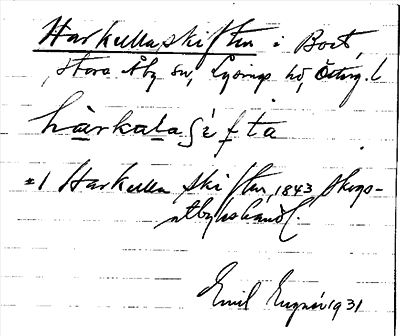 Harkullaskiften i Bort,
Stora Åby sn, Lysings hd, Östrg. l
hàrkalaʃefta
±1 Harkulla skiften, 1843 Skogs-
utbyteshandl.
Emil 1931